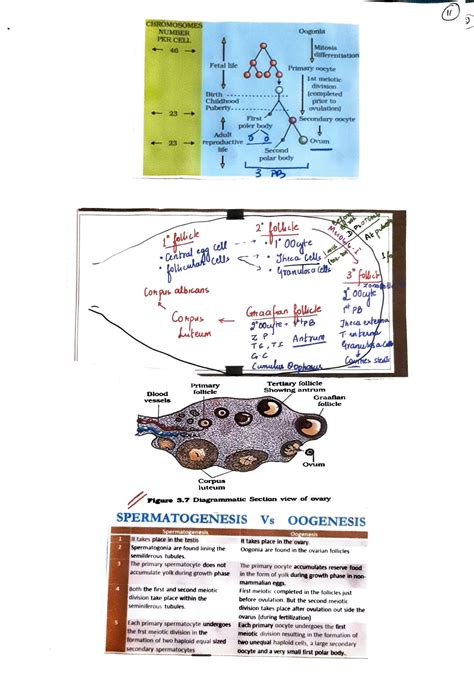 11
CHROMOSOMES
NUMBER
PER CELL
46
23
23
Oogonia
Mitosis
differentiation
Fetal life
Primary oocyte
1st meiotic
division
(completed
prior to
ovulation)
Birth
Childhood
Puberty
First
poler body
Secondary oocyte
Adult
reproductive
life
Ovum
Second
polar body
3 PB
1° follicle
• Central egg cell
• follicular cells
2° follicle
• 1° OOcyte
• Theca Cells
• Granulosa cells
Meiosis-I
3° follicle
2° OOcyte
1st PB
Theca externa
T interna
Granulosa cells
Corpus albicans
Corpus
Luteum
Graafian follicle
2° OOcyte + 1st PB
Z P
T E, T I
Antrum
G C
Cumulus Oophorus
Blood
vessels
Primary
follicle
Tertiary follicle
Showing antrum
Graafian
follicle
Ovum
Corpus
luteum
Figure 3.7 Diagrammatic Section view of ovary
SPERMATOGENESIS Vs OOGENESIS
Spermatogenesis Oogenesis
1 It takes place in the testis It takes place in the ovary
2 Spermatogonia are found lining the Oogonia are found in the ovarian follicles
seminiferous tubules.
3 The primary spermatocyte does not The primary oocyte accumulates reserve food
accumulate yolk during growth phase in the form of yolk during growth phase in non-
mammalian eggs.
4 Both the first and second meiotic First meiotic completed in the follicles just
division take place within the before ovulation. But the second meiotic
seminiferous tubules. division takes place after ovulation out side the
ovarus (during fertilization)
5 Each primary spermatocyte undergoes Each primary oocyte undergoes the first
the first meiotic division in the meiotic division resulting in the formation of
formation of two haploid equal sized two unequal haploid cells, a large secondary
secondary spermatocytes oocyte and a very small first polar body.